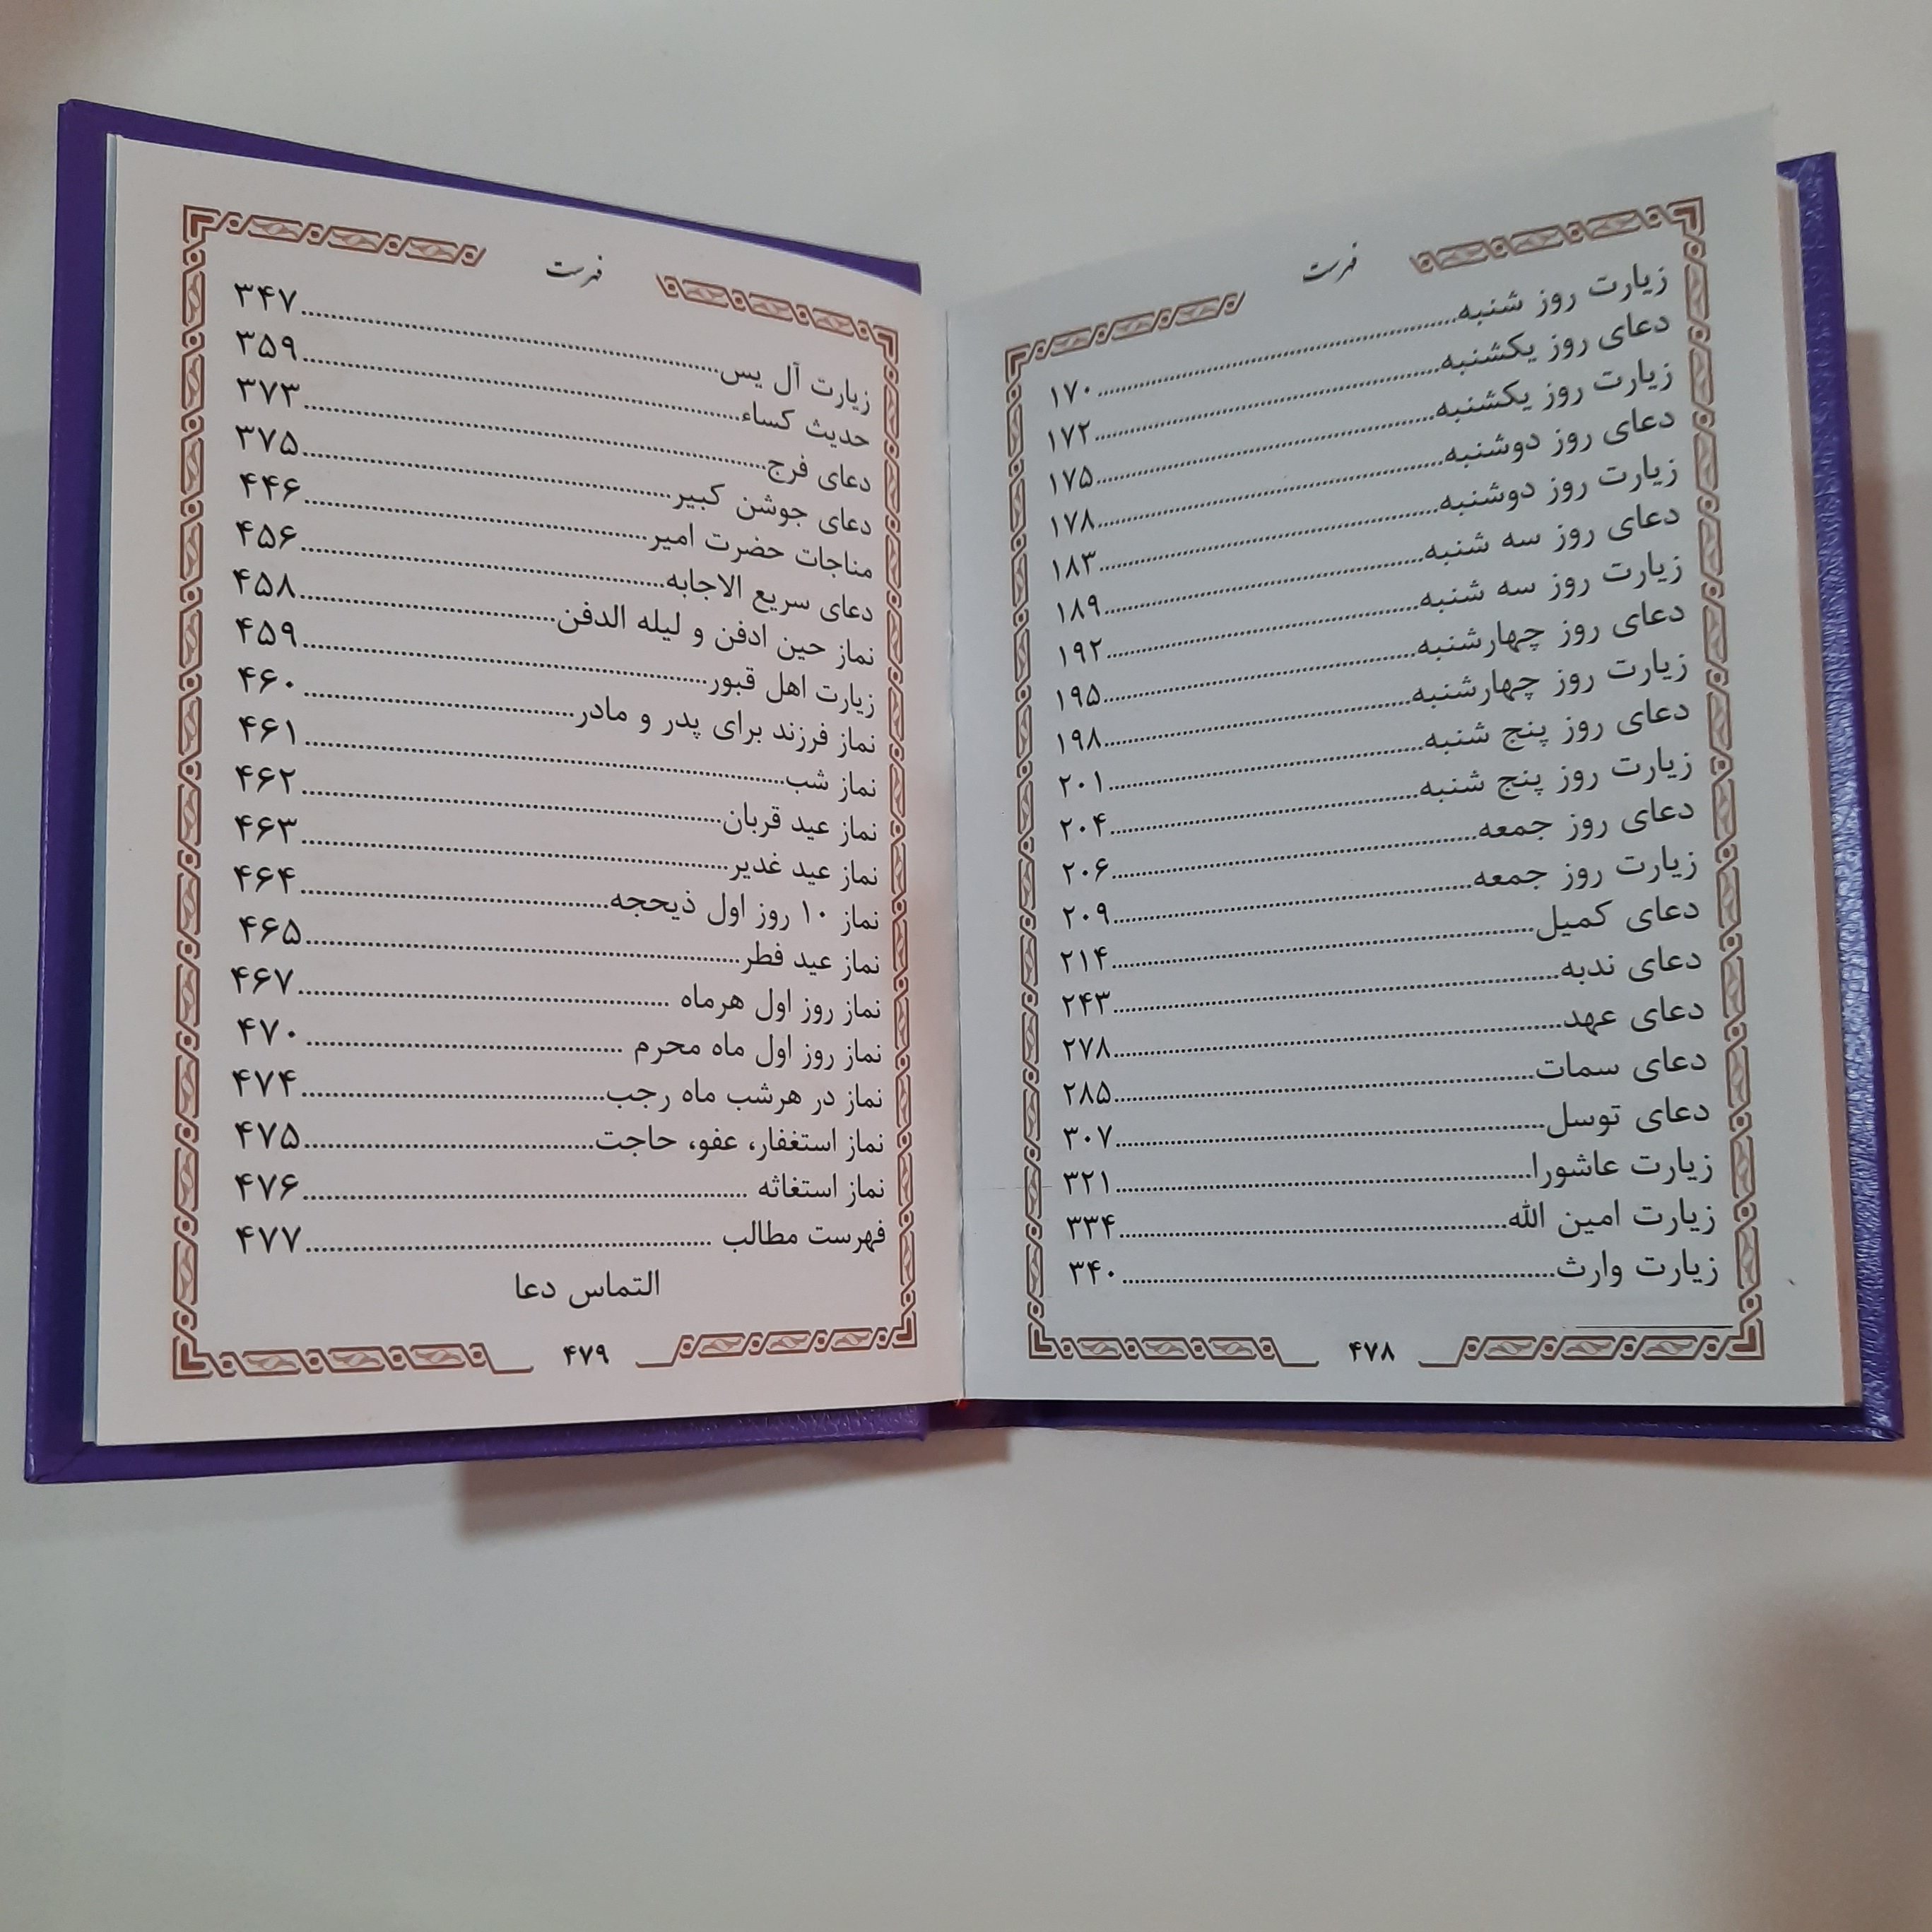 فهرست
زیارت روز شنبه................۱۷۰
دعای روز یکشنبه................۱۷۲
زیارت روز یکشنبه................۱۷۵
دعای روز دوشنبه................۱۷۸
زیارت روز دوشنبه................۱۸۳
دعای روز سه شنبه................۱۸۹
زیارت روز سه شنبه................۱۹۲
دعای روز چهارشنبه................۱۹۵
زیارت روز چهارشنبه................۱۹۸
دعای روز پنج شنبه................۲۰۱
زیارت روز پنج شنبه................۲۰۴
دعای روز جمعه................۲۰۶
زیارت روز جمعه................۲۰۹
دعای کمیل................۲۱۴
دعای ندبه................۲۴۳
دعای عهد................۲۷۸
دعای سمات................۲۸۵
دعای توسل................۳۰۷
زیارت عاشورا................۳۲۱
زیارت امین الله................۳۳۴
زیارت وارث................۳۴۰
۴۷۸
فهرست
زیارت آل یس................۳۴۷
حدیث کساء................۳۵۹
دعای فرج................۳۷۳
دعای جوشن کبیر................۳۷۵
مناجات حضرت امیر................۴۴۶
دعای سریع الاجابه................۴۵۶
نماز حین ادفن و لیله الدفن................۴۵۸
زیارت اهل قبور................۴۵۹
نماز فرزند برای پدر و مادر................۴۶۰
نماز شب................۴۶۱
نماز عید قربان................۴۶۲
نماز عید غدیر................۴۶۳
نماز ۱۰ روز اول ذیحجه................۴۶۴
نماز عید فطر................۴۶۵
نماز روز اول هرماه ................۴۶۷
نماز روز اول ماه محرم ................۴۷۰
نماز در هرشب ماه رجب................۴۷۴
نماز استغفار، عفو، حاجت................۴۷۵
نماز استغاثه ................۴۷۶
فهرست مطالب ................۴۷۷
التماس دعا
۴۷۹